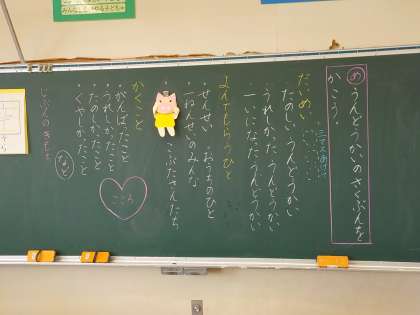 め
うんどうかいのさくぶんを
かこう。
だいめい
たのしい うんどうかい
うれしかった うんどうかい
一いになった うんどうかい
よんでもらうひと
・せんせい ・おうちのひと
・一ねんせいのみんな
・こぶたさんたち
かくこと
・がんばったこと
・うれしかったこと
・たのしかったこと
・くやしかったこと
など
こころ
じぶんのきもち